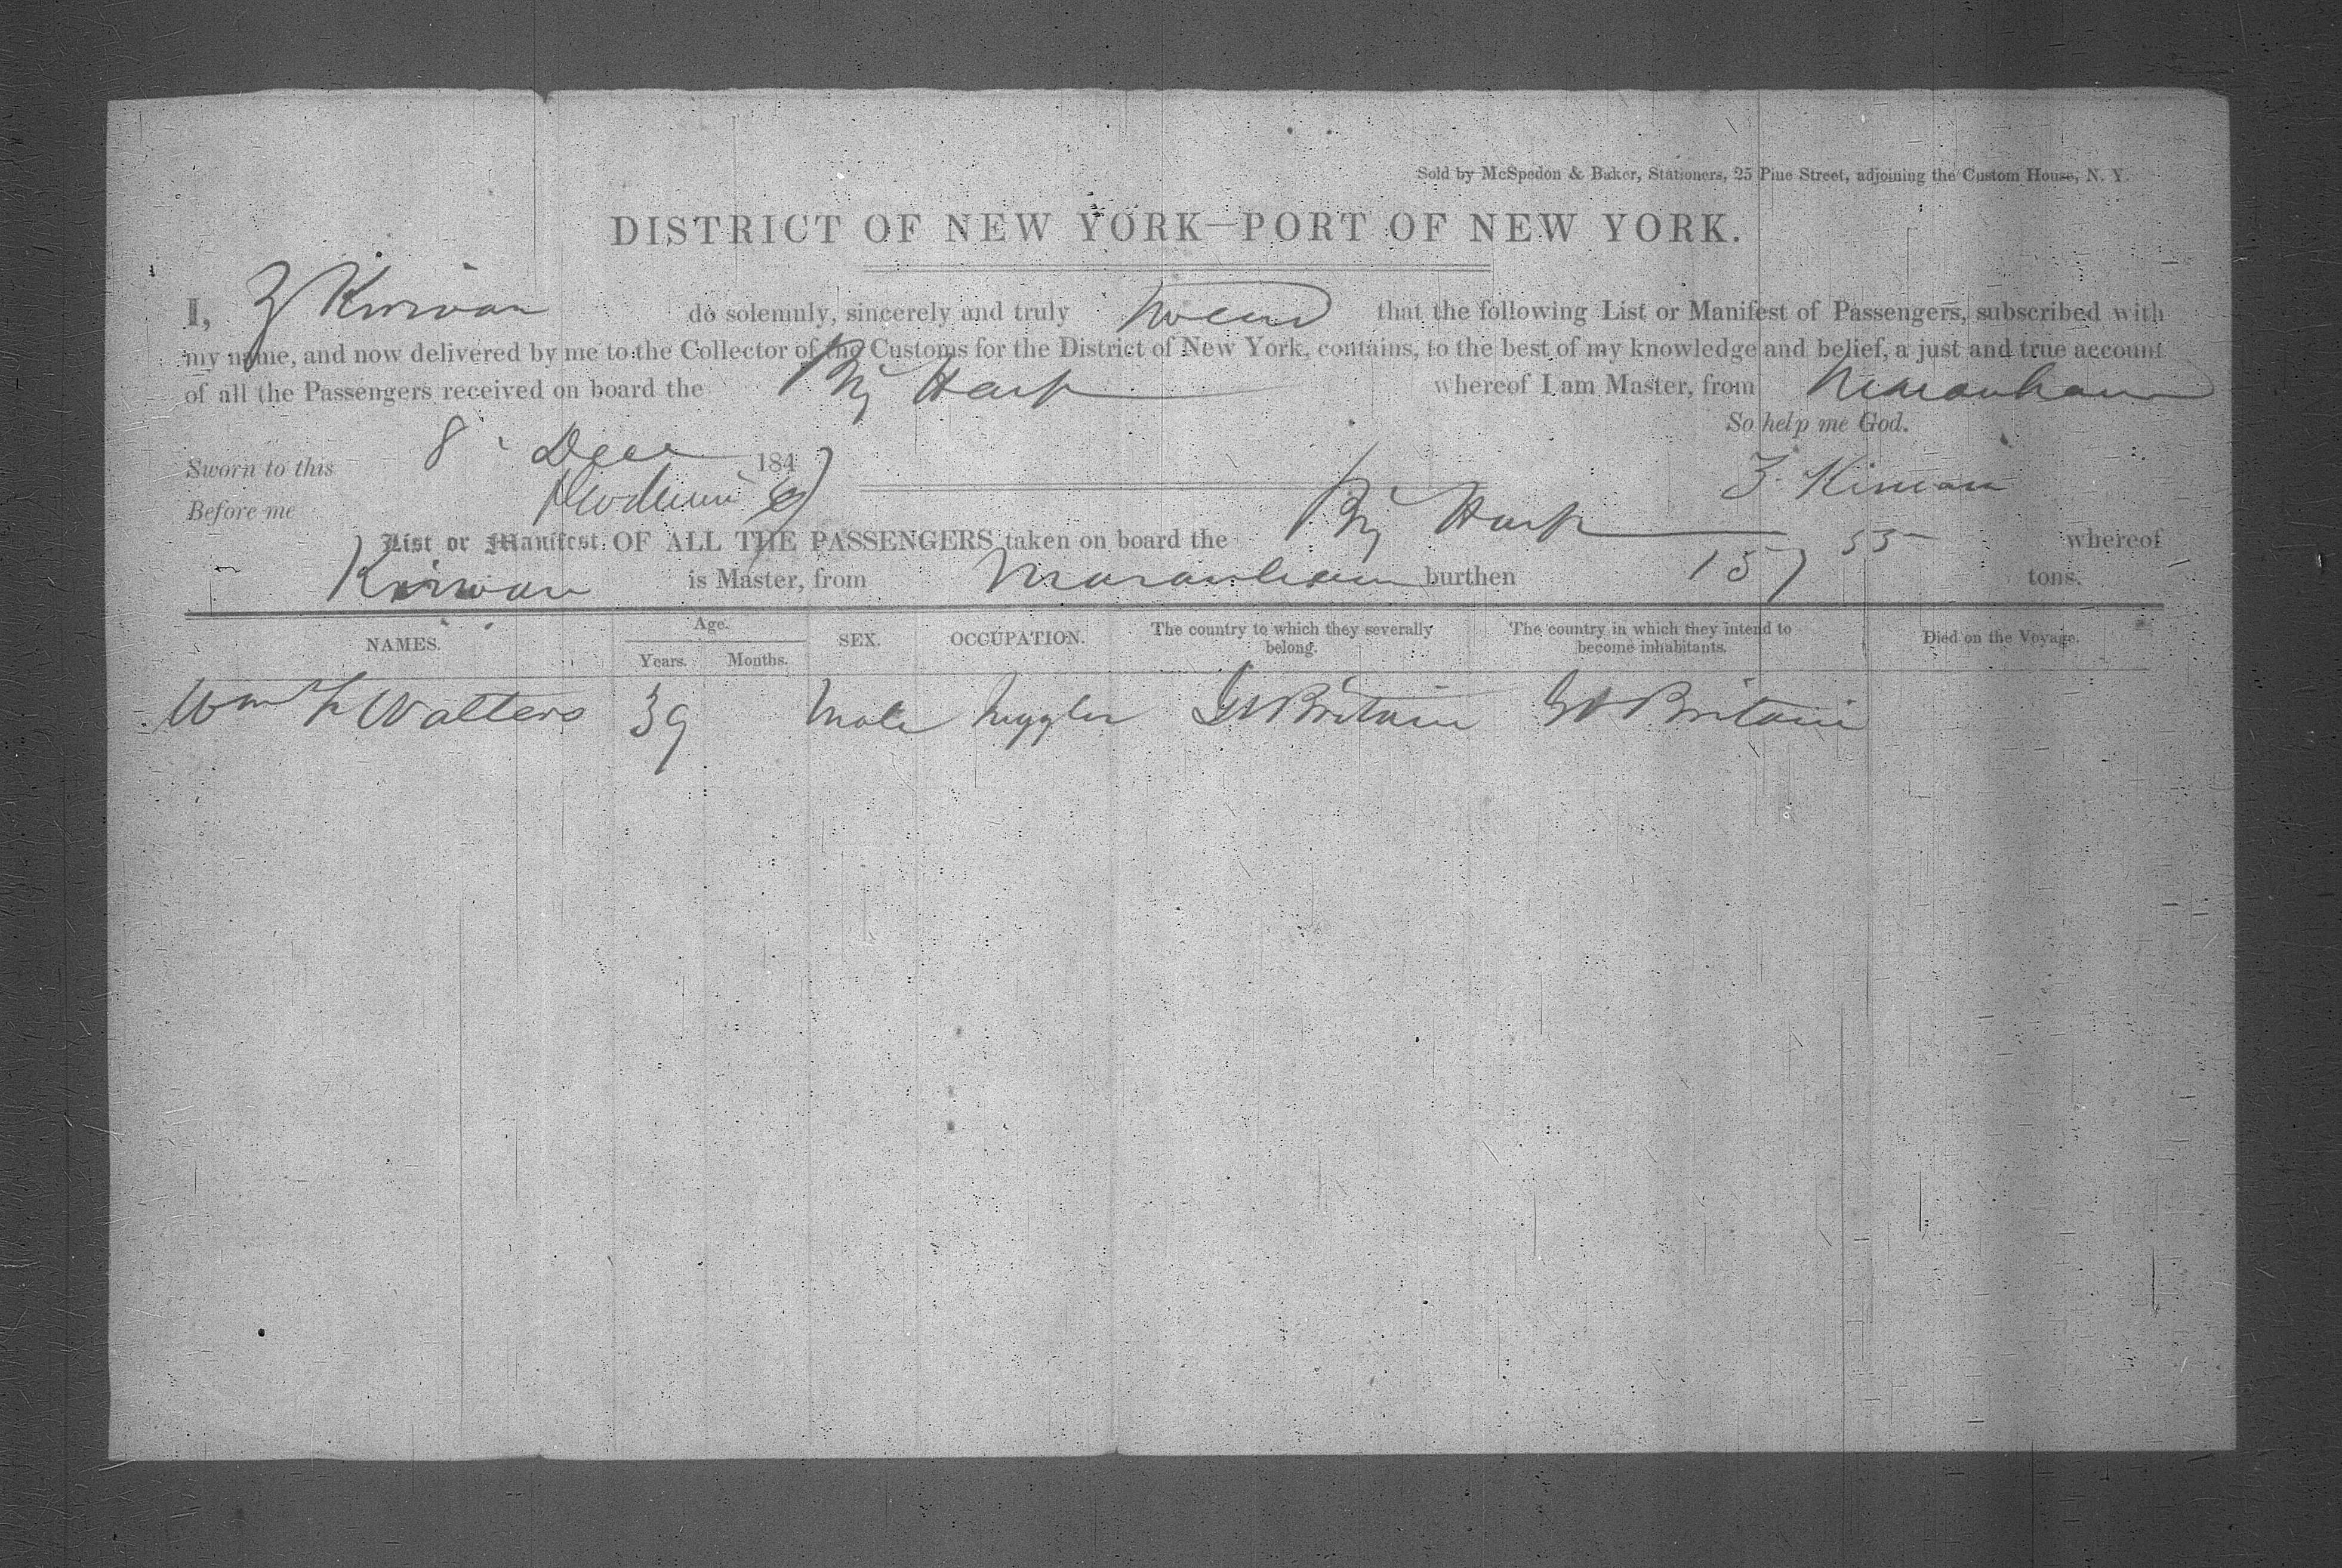 Sold by McSpedon & Baker, Stationers, 25 Pine Street, adjoining the Custom House, N. Y.
DISTRICT OF NEW YORK—PORT OF NEW YORK.
I, Z Kirwan do solemnly, sincerely and truly swear that the following List or Manifest of Passengers, subscribed with
my name, and now delivered by me to the Collector of the Customs for the District of New York, contains, to the best of my knowledge and belief, a just and true account
of all the Passengers received on board the Brig Harp whereof I am Master, from Maranham
So help me God.
Sworn to this 8 Decr 1847
Z Kirwan
Before me
List or Manifest OF ALL THE PASSENGERS taken on board the Brig Harp whereof
Kirwan is Master, from Maranham burthen 157 55 tons.
NAMES. Age. Years. Months. SEX. OCCUPATION. The country to which they severally belong. The country in which they intend to become inhabitants. Died on the Voyage.
Wm L Walters 39 Male Juggler Gt Britain Gt Britain